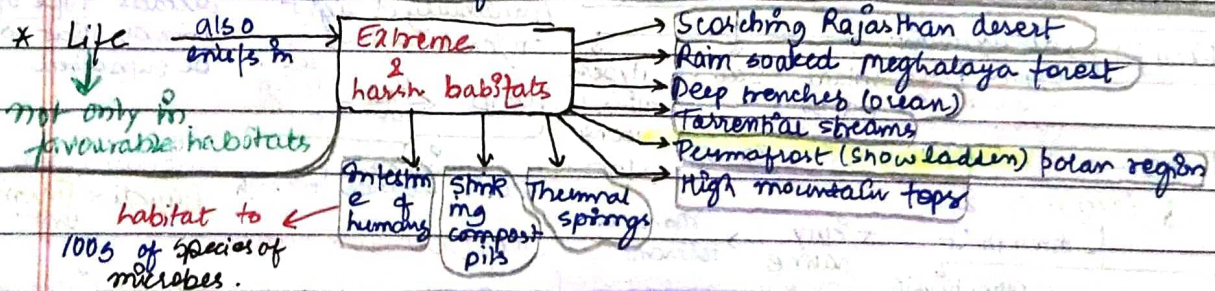 * Life also exists in Extreme & harsh habitats
not only in favourable habitats
Scorching Rajasthan desert
Rain soaked meghalaya forest
Deep trenches (ocean)
Torrential streams
Permafrost (snow ladden) polar region
High mountain tops
Thermal springs
Stinking compost pits
Intestine of humans
habitat to
100s of species of
microbes.